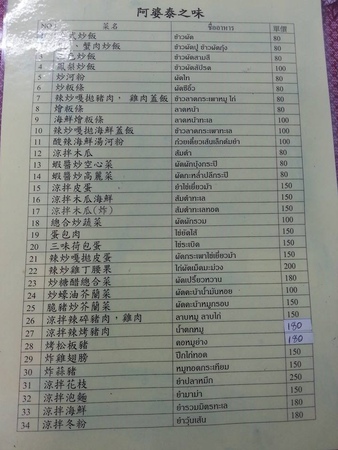 阿婆泰之味
NO 菜名 ชื่ออาหาร 單價
1 式炒飯 ข้าวผัด 80
2 、蟹肉炒飯 ข้าวผัดปู ข้าวผัดกุ้ง 80
3 炒飯 ข้าวผัดสามสี 80
4 鳳梨炒飯 ข้าวผัดสัปรด 100
5 炒河粉 ผัดไท 80
6 炒粄條 ผัดซีอิ๊ว 80
7 辣炒嘎拋豬肉，雞肉蓋飯 ข้าวลาดกระเพาหมู ไก่ 80
8 燴粄條 ลาดหน้า 80
9 海鮮燴粄條 ลาดหน้าทะเล 100
10 辣炒嘎拋海鮮蓋飯 ข้าวลาดกระเพาทะเล 100
11 酸辣海鮮湯河粉 ก๋วยเตี๋ยวเส้นเล็กต้มยำ 100
12 涼拌木瓜 ส้มตำ 80
13 蝦醬炒空心菜 ผัดผักบุ้งกระปิ 80
14 蝦醬炒高麗菜 ผัดกะหล่ำปลีกระปิ 80
15 涼拌皮蛋 ยำไข่เยี่ยวม้า 150
16 涼拌木瓜海鮮 ส้มตำทะเล 150
17 涼拌木瓜(炸) ส้มตำทะเลทอด 150
18 總合炒蔬菜 ผัดผักรวม 100
19 蛋包肉 ไข่ยัดไส้ 150
20 三味荷包蛋 ไข่ระเบิด 150
21 辣炒嘎拋皮蛋 ผัดกระเพาไข่เยี่ยวม้า 150
22 辣炒雞丁腰果 ไก่ผัดเม็ดมะม่วง 200
23 炒糖醋總合菜 ผัดเปรี้ยวหวาน 180
24 炒蠔油芥蘭菜 ผัดคะน้าน้ำมันหอย 100
25 脆豬炒芥蘭菜 ผัดคะน้าหมูกรอบ 150
26 涼拌辣碎豬肉，雞肉 ลาบหมู ลาบไก่ 150
27 涼拌辣烤豬肉 น้ำตกหมู 180
28 烤松板豬 คอหมูย่าง 180
29 炸雞翅膀 ปีกไก่ทอด 150
30 炸蒜豬 หมูทอดกระเทียม 150
31 涼拌花枝 ยำปลาหมึก 250
32 涼拌泡麵 ยำมาม่า 150
33 涼拌海鮮 ยำรวมมิตรทะเล 180
34 涼拌冬粉 ยำวุ้นเส้น 180